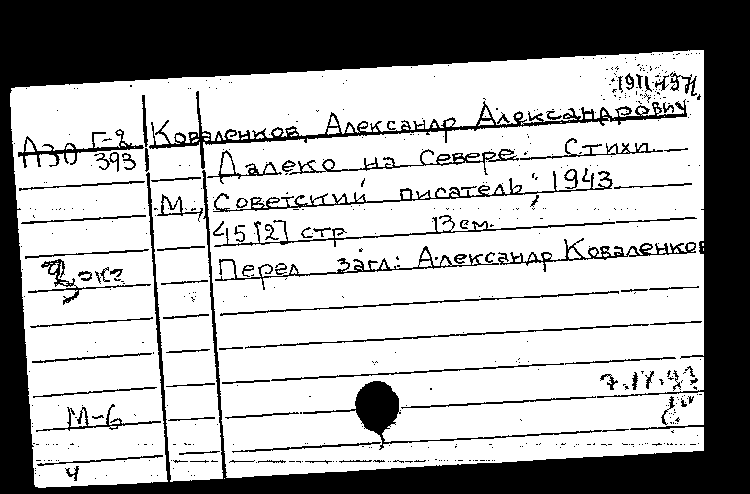 1911-1971.
А30 Г-2/393 Коваленков, Александр Александрович
Далеко на Севере. Стихи
М., Советский писатель, 1943
45 [2] стр 13 см.
2 экз Перел загл: Александр Коваленков
М-6
ч